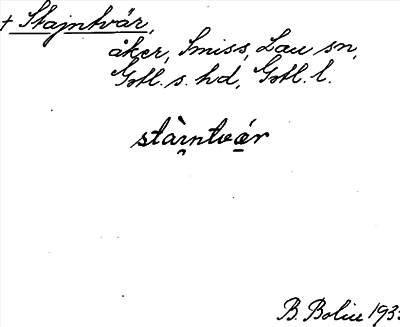 + Stajntvár,
åker, Smiss, Lau sn,
Gotl. s. hd, Gotl. l.
stàrntvár
B. Bolin 193